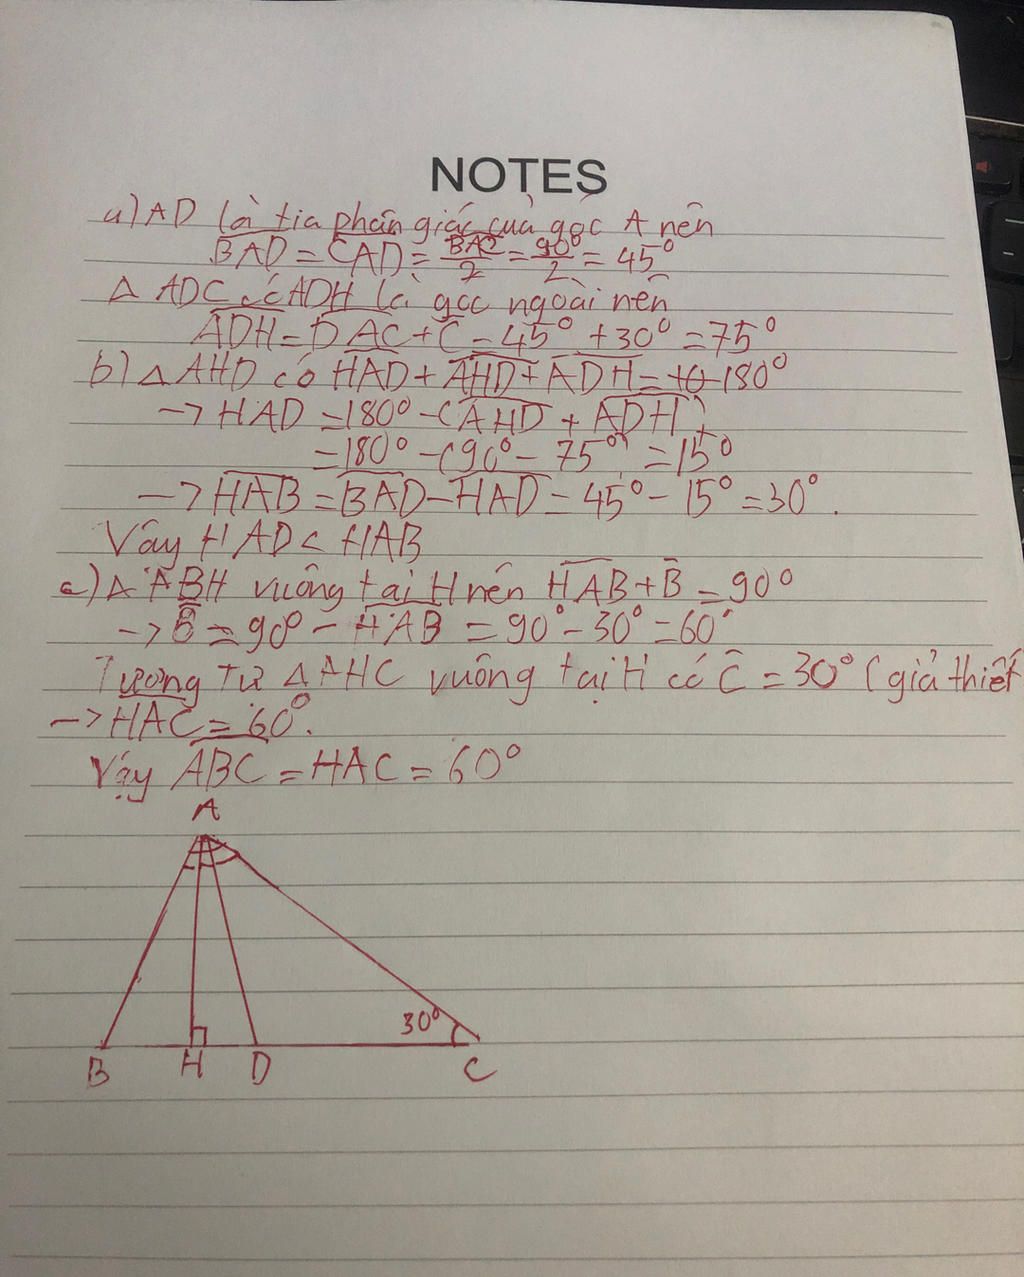 NOTES
a) AD là tia phân giác của góc A nên
BAD = CAD = BAC/2 = 90°/2 = 45°
Δ ADC có ADH là góc ngoài nên
ADH = DAC + C = 45° + 30° = 75°
b) Δ AHD có HAD + AHD + ADH = 180°
-> HAD = 180° - (AHD + ADH)
= 180° - (90° - 75°) = 15°
-> HAB = BAD - HAD = 45° - 15° = 30°.
Vây HAD < HAB
c) Δ ABH vuông tai H nên HAB + B = 90°
-> B = 90° - HAB = 90° - 30° = 60°
Tương Tự Δ AHC vuông tại H có C = 30° (giả thiết
-> HAC = 60°.
Vậy ABC = HAC = 60°
A
30°
B H D C